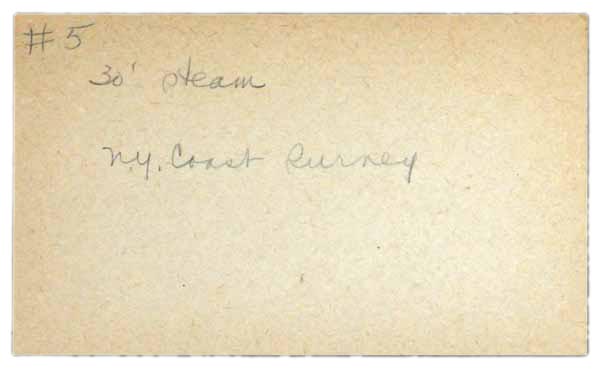 #5
30' steam
N.Y. Coast Survey